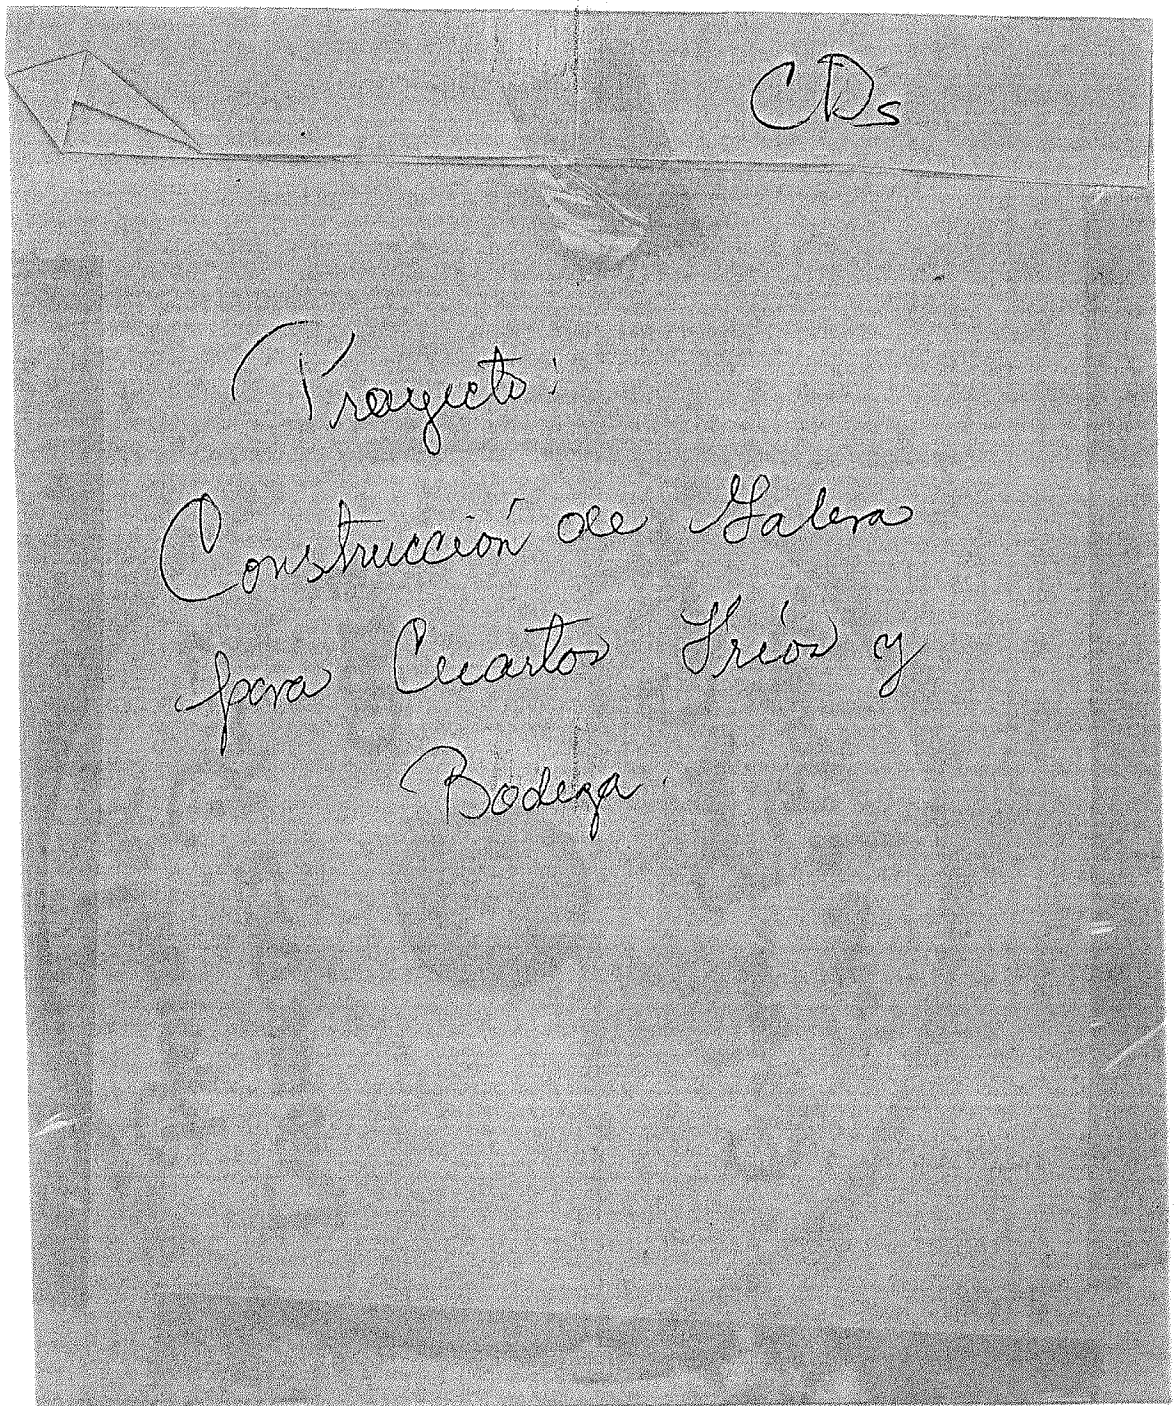 CDs
Proyecto:
Construcción de Galera
para Cuartos Fríos y
Bodega.